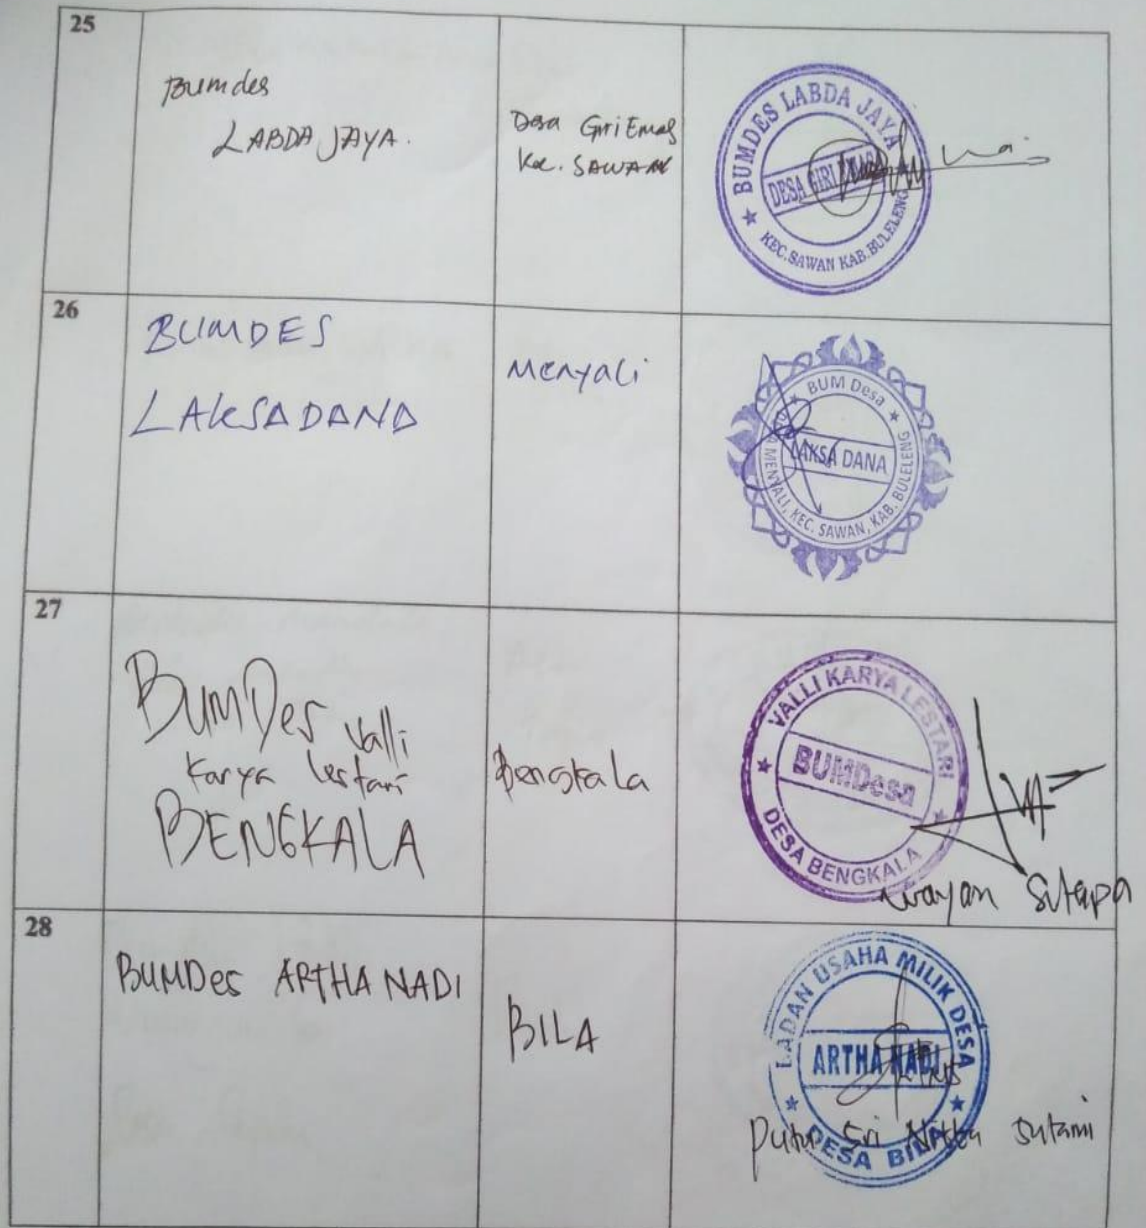 25
Bumdes
LABDA JAYA.
Desa Giri Emas
Kec. SAWAN
★ BUMDES LABDA JAYA ★
DESA GIRI EMAS
KEC. SAWAN KAB. BULELENG
26
BUMDES
LAKSADANA
Menyali
★ BUM Desa ★
LAKSA DANA
DESA MENYALI, KEC. SAWAN, KAB. BULELENG
27
BUMDes Valli
Karya lestari
BENGKALA
Bengkala
VALLI KARYA LESTARI
BUMDesa
★ DESA BENGKALA ★
Wayan Sutapa
28
BUMDes ARTHA NADI
BILA
BADAN USAHA MILIK DESA
ARTHA NADI
★ DESA BILA ★
Putu Sri Sutami